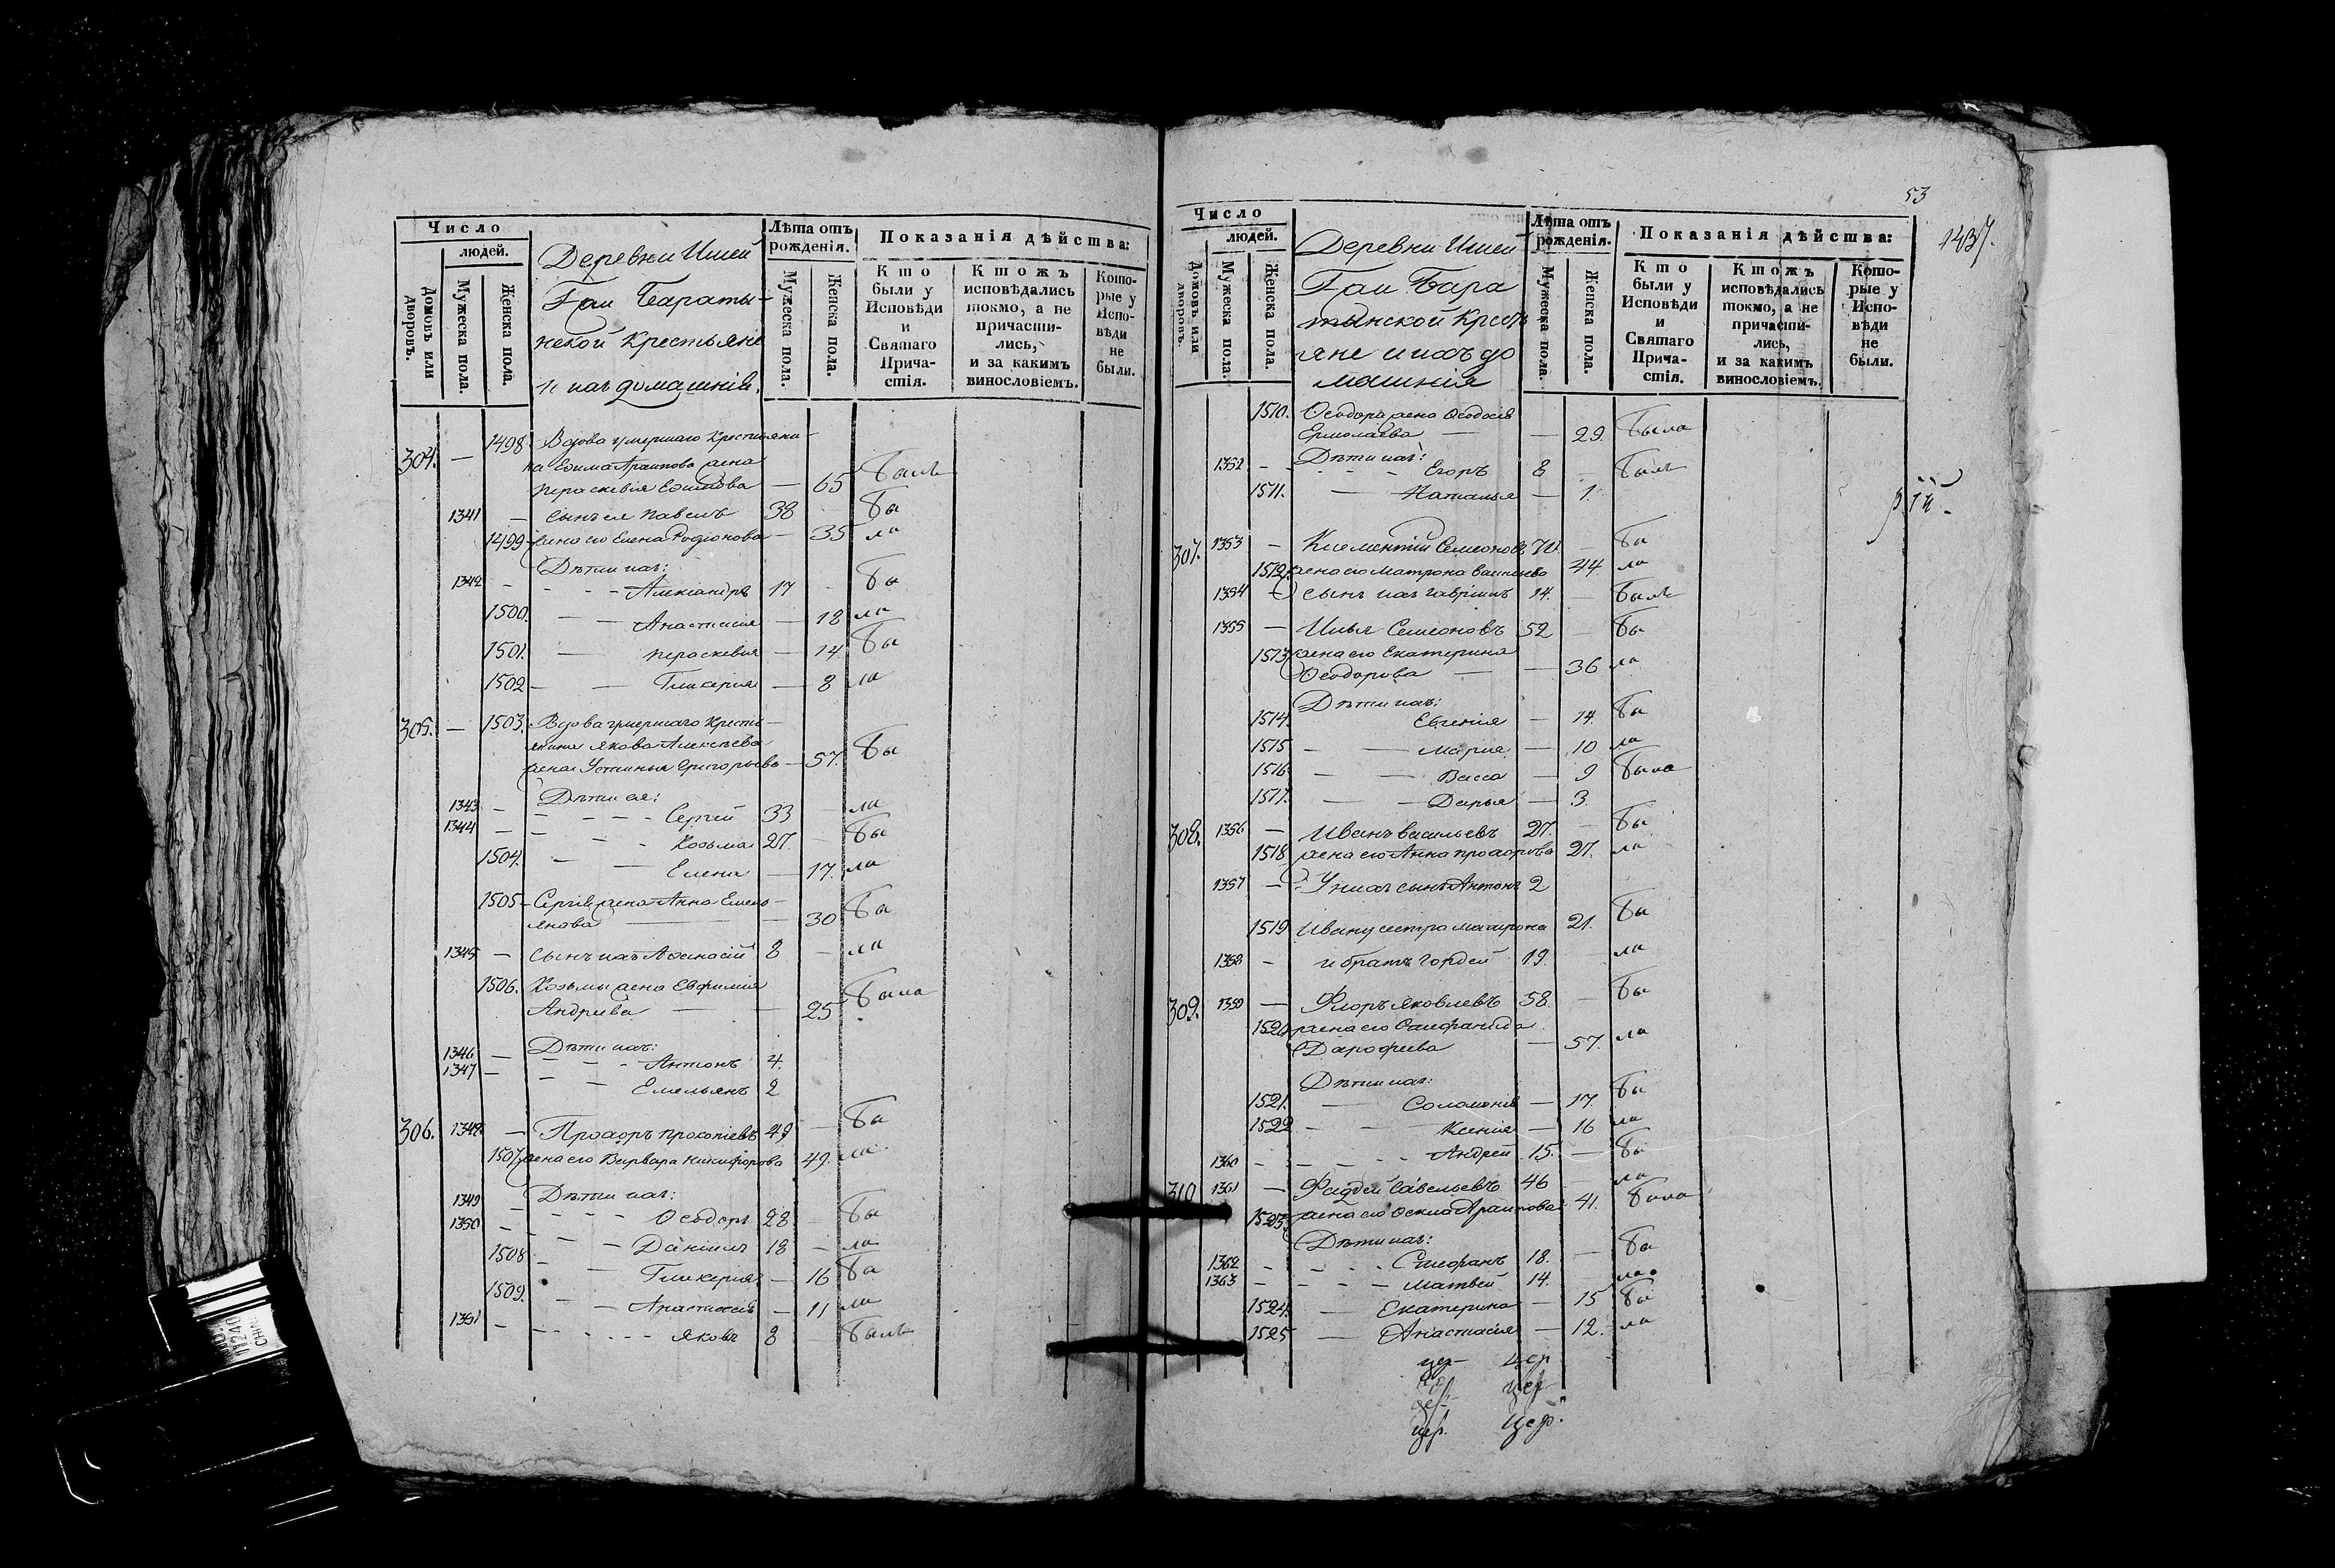 Число
людей.
Домовъ или дворовъ.
Мужеска пола.
Женска пола.
Деревни Ишей
Гаи Бараты-
нской Крестьяне
и ихъ домашнія.
Лѣта отъ рожденія.
Мужеска пола.
Женска пола.
Показанія дѣйства:
Кто были у Исповѣди и Святаго Прича-стія.
Ктожъ исповѣдались токмо, а не причасти-лись, и за какимъ винословіемъ.
Кото-рые у Испо-вѣди не были.
304. — 1498 Вдова умершаго Крестьяни-
на Ефима Архипова жена
Пераскевія Ефимова — 65 былъ
1341 — Сынъ ея Павелъ 38 — бы
1499 жена его Елена Родіонова — 35 ла
Дѣти ихъ:
1342 — Александръ 17 — бы
1500. — Анастасия — 18 ла
1501. — Пераскевия — 14 бы
1502 — Гликерия — 8 ла
305. — 1503. Вдова умершаго Кресть-
янина Якова Алексѣева
жена Устинья Григорьева — 57. бы
Дѣти ея:
1343 — Сергей 33 — ла
1344 — Козьма 27. — бы
1504. — Елена — 17. ла
1505 — Сергѣя жена Анна Емель-
янова — 30 бы
1345 — Сынъ ихъ Афанасій 8 — ла
1506. Козьмы жена Евфимия
Андреева — 25 была
Дѣти ихъ:
1346 — Антонъ 4.
1347 — Емельянъ 2
306. 1348 — Прохоръ Прокопіевъ 49 — бы
1507. жена его Варвара Никифорова 49. ла
Дѣти ихъ:
1349 — Ѳеодоръ 28 — бы
1350 — Даніилъ 18 — ла
1508 — Гликерия — 16 бы
1509. — Анастасія — 11 ла
1351 — Яковъ 8 — былъ
53
1437.
Число
людей.
Домовъ или дворовъ.
Мужеска пола.
Женска пола.
Деревни Ишей
Гаи Бара
тынской Кресть
яне и ихъ до
машнія
Лѣта отъ рожденія.
Мужеска пола.
Женска пола.
Показанія дѣйства:
Кто были у Исповѣди и Святаго Прича-стія.
Ктожъ исповѣдались токмо, а не причасти-лись, и за какимъ винословіемъ.
Кото-рые у Испо-вѣди не были.
1510. Ѳеодора жена Ѳеодосія
Ермолаева — 29. была
Дѣти ихъ:
1352 — Егоръ 8 — былъ
1511. — Наталья — 1.
307. 1353 — Климентій Семеоновъ — бы
1512. жена его Матрона Васильева 44. ла
1354 — сынъ ихъ Гавріилъ 14. — былъ
1355 — Илья Семеоновъ 52 — бы
1513 жена его Екатерина
Ѳеодорова — 36 ла
Дѣти ихъ:
1514. Евгенія — 14. бы
1515 — Мария — 10 ла
1516 — Васса — 9 была
1517. — Дарья — 3.
308. 1356 — Иванъ Васильевъ 27. — бы
1518 жена его Анна Прохорова 27. ла
1357 — У нихъ сынъ Антонъ 2
1519 Ивану сестра Матрона 21. бы
1358 — и братъ Гордей 19. — ла
309. 1359 — Флоръ Яковлевъ 58. — бы
1520 жена его
Дарофеева — 57. ла
Дѣти ихъ:
1521. — Соломонія — 17. бы
1522 — Ксенія — 16 ла
1360 — Андрей 15. — бы
310 1361 — Фаддей Савельевъ 46 — ла
1523. жена его Ѳекла Архипова 41. была
Дѣти ихъ:
1362 — Стефанъ 18. — бы
1363 — Матвей 14. — ла
1524. — Екатерина — 15 бы
1525 — Анастасія — 12. ла